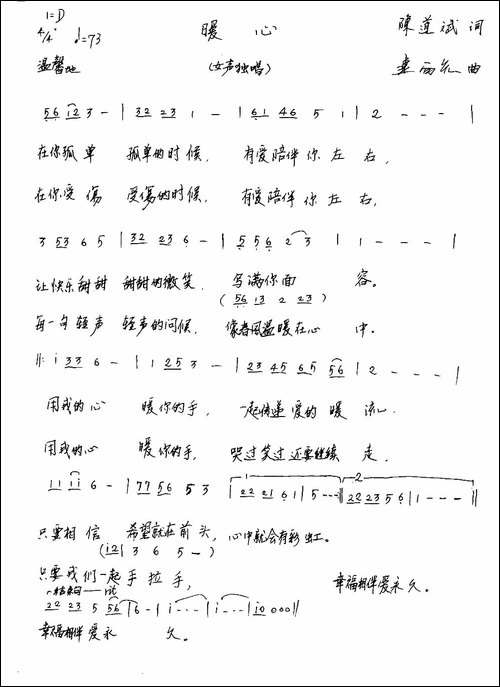 1=D
4/4 ♩=73 暖 心 陳道斌 词
温馨地 (女声独唱) 曲
5 6 i 2 3 - | 3 2 2 3 1 - | 6 1 4 6 5 1 | 2 - - - |
在你孤单 孤单的时候, 有爱陪伴你左右,
在你受傷 受傷的时候, 有爱陪伴你左右,
3 5 3 6 5 | 3 2 2 3 6 - | 5 5 6 2 3 | 1 - - - |
让快乐甜甜 甜甜的微笑, 写满你面 容。
(5 6 1 3 2 2 3)
每一句轻声 轻声的问候, 像春风温暖在心 中.
‖: i 3 3 6 - | 1 2 5 3 - | 2 3 4 5 6 5 5 6 | 2 - - - |
用我的心 暖你的手, 一起传递爱的暖 流.
用我的心 暖你的手, 哭过笑过还要继续 走.
1 1 i i 6 - | 7 7 5 6 5 3 | 1 2 2 2 1 6 1 | 5 - - - :‖ 2 2 2 2 3 5 6 | 1 - - - ‖
只要相信 希望就在前头, 心中就会有彩虹。
(i 2 | 3 6 5 - )
只要我们一起手拉手, 幸福相伴爱永久。
结束句
2 2 2 3 5 5 6 | 6 - | i - - - | i - - - | i 0 0 0 0 ‖
幸福相伴爱永 久。